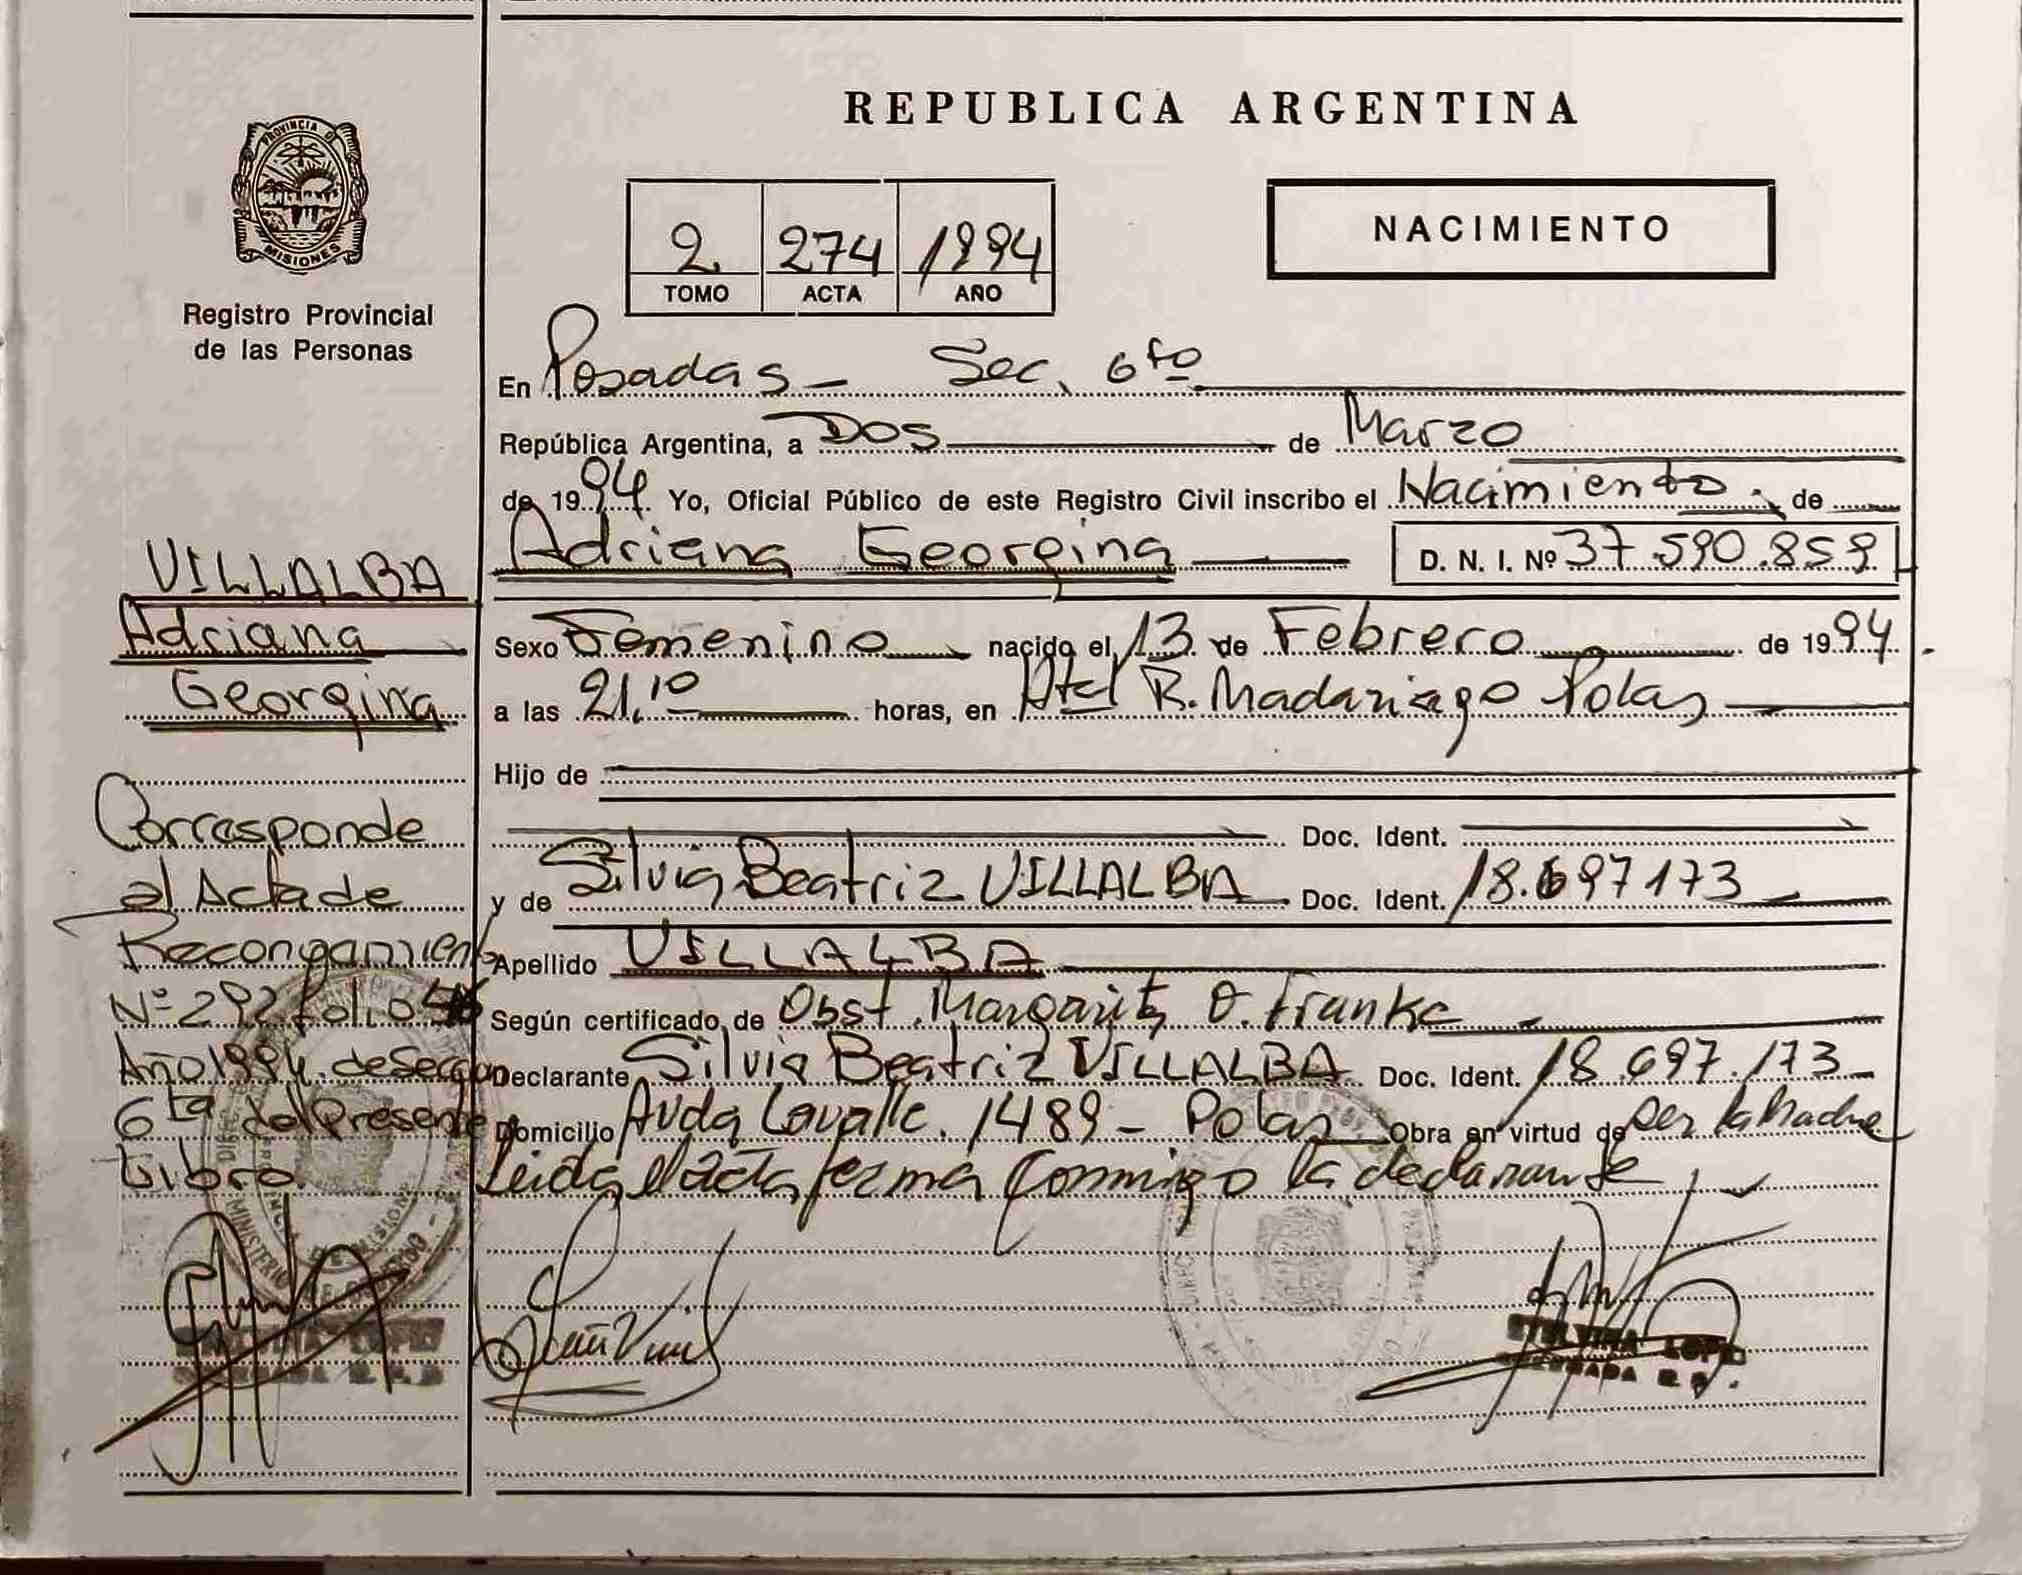 REPUBLICA ARGENTINA
PROVINCIA DE
MISIONES
Registro Provincial
de las Personas
NACIMIENTO
2 274 1994
TOMO ACTA AÑO
En Posadas - Sec. 6ta
República Argentina, a Dos de Marzo
de 1994 Yo, Oficial Público de este Registro Civil inscribo el Nacimiento de
Adriana Georgina D. N. I. Nº 37.590.859
Sexo Femenino nacido el 13 de Febrero de 1994.
a las 21,10 horas, en Htal R. Madariaga Pdas
Hijo de
Doc. Ident.
y de Silvia Beatriz VILLALBA Doc. Ident. 18.697173
Apellido VILLALBA
Según certificado de Obst. Margarita O. Franke
Declarante Silvia Beatriz VILLALBA Doc. Ident. 18.697.173
Domicilio Avda Lavalle. 1489 - Pdas Obra en virtud de ser la Madre
Leida el acta firma conmigo la declarante
VILLALBA
Adriana
Georgina
Corresponde
al Acta de
Reconocimiento
Nº 292 fol.
Año 1994. de Sección
6ta del Presente
Libro